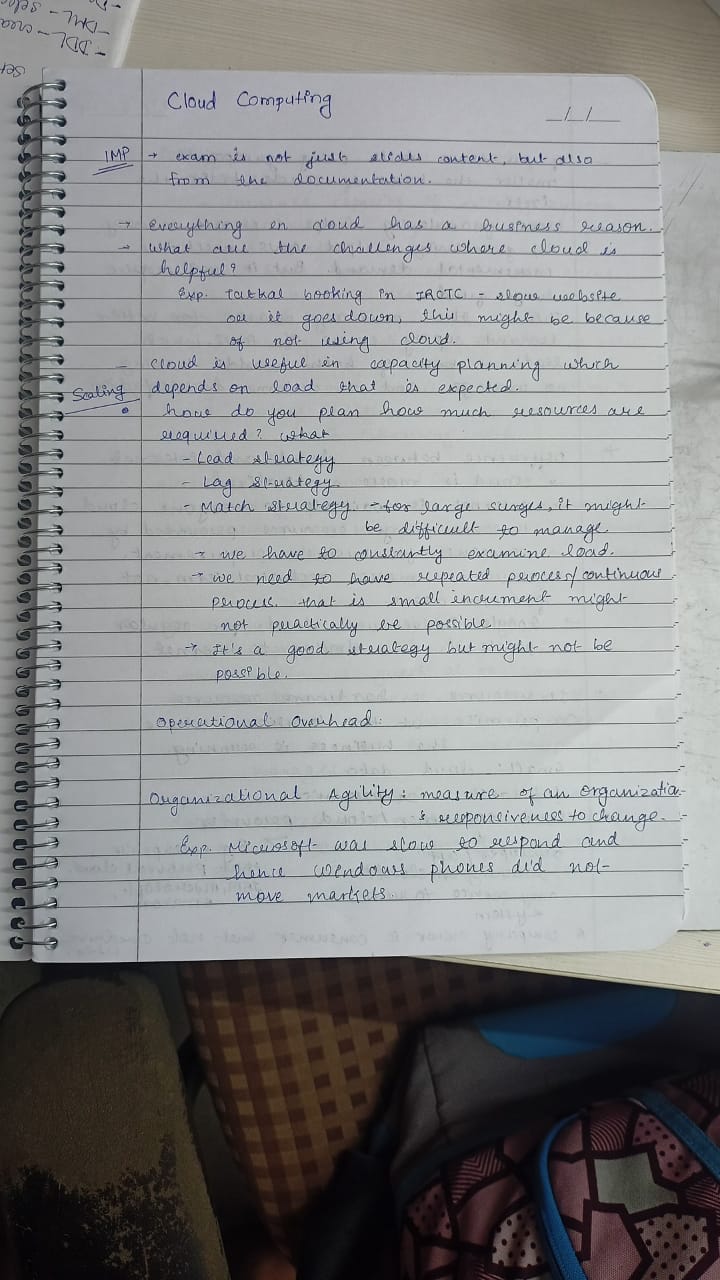 - DDL - crea
- DML - selec
Cloud Computing
_/_/_
IMP → exam is not just slides content, but also
from the documentation.
→ Everything in cloud has a business reason.
→ What are the challenges where cloud is
helpful?
Exp. Tatkal booking in IRCTC - slow website
or it goes down, this might be because
of not using cloud.
- cloud is useful in capacity planning which
Scaling depends on load that is expected.
• how do you plan how much resources are
required? what
- Lead strategy
- Lag strategy
- Match strategy - for large surges, it might
be difficult to manage.
→ we have to constantly examine load.
→ we need to have repeated process/continuous
process. that is small increment might
not practically be possible.
→ It's a good strategy but might not be
possible.
Operational Overhead:
Organizational Agility: measure of an organizatio
s responsiveness to change.
Exp. Microsoft was slow to respond and
hence windows phones did not
move markets.